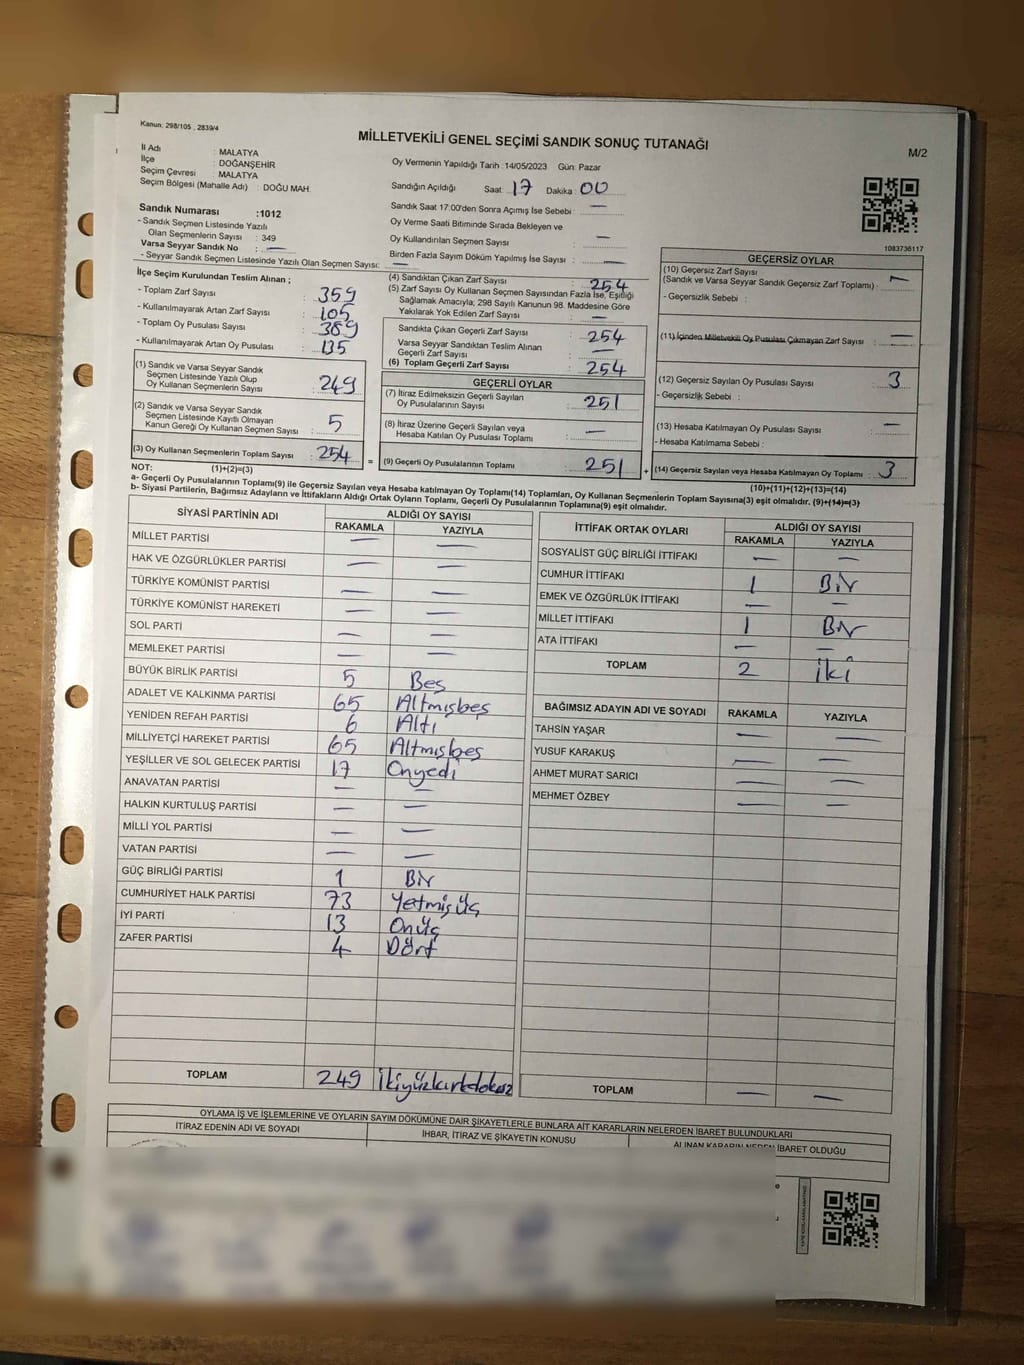 Kanun: 298/105 , 2839/4
MİLLETVEKİLİ GENEL SEÇİMİ SANDIK SONUÇ TUTANAĞI
M/2
İl Adı : MALATYA
İlçe : DOĞANŞEHİR
Seçim Çevresi : MALATYA
Seçim Bölgesi (Mahalle Adı) : DOĞU MAH.
Oy Vermenin Yapıldığı Tarih :14/05/2023 Gün: Pazar
Sandığın Açıldığı Saat: 17 Dakika : 00
Sandık Saat 17:00'den Sonra Açımış İse Sebebi : —
Oy Verme Saati Bitiminde Sırada Bekleyen ve
Oy Kullandırılan Seçmen Sayısı : —
Birden Fazla Sayım Döküm Yapılmış İse Sayısı : —
1083736117
Sandık Numarası :1012
- Sandık Seçmen Listesinde Yazılı
Olan Seçmenlerin Sayısı : 349
Varsa Seyyar Sandık No : —
- Seyyar Sandık Seçmen Listesinde Yazılı Olan Seçmen Sayısı: —
İlçe Seçim Kurulundan Teslim Alınan ;
- Toplam Zarf Sayısı : 359
- Kullanılmayarak Artan Zarf Sayısı : 105
- Toplam Oy Pusulası Sayısı : 389
- Kullanılmayarak Artan Oy Pusulası : 135
(1) Sandık ve Varsa Seyyar Sandık
Seçmen Listesinde Yazılı Olup
Oy Kullanan Seçmenlerin Sayısı : 249
(2) Sandık ve Varsa Seyyar Sandık
Seçmen Listesinde Kayıtlı Olmayan
Kanun Gereği Oy Kullanan Seçmen Sayısı : 5
(3) Oy Kullanan Seçmenlerin Toplam Sayısı : 254
(4) Sandıktan Çıkan Zarf Sayısı : 254
(5) Zarf Sayısı Oy Kullanan Seçmen Sayısından Fazla İse, Eşitliği
Sağlamak Amacıyla; 298 Sayılı Kanunun 98. Maddesine Göre
Yakılarak Yok Edilen Zarf Sayısı : —
Sandıkta Çıkan Geçerli Zarf Sayısı : 254
Varsa Seyyar Sandıktan Teslim Alınan
Geçerli Zarf Sayısı : —
(6) Toplam Geçerli Zarf Sayısı : 254
GEÇERLİ OYLAR
(7) İtiraz Edilmeksizin Geçerli Sayılan
Oy Pusulalarının Sayısı : 251
(8) İtiraz Üzerine Geçerli Sayılan veya
Hesaba Katılan Oy Pusulası Toplamı : —
= (9) Geçerli Oy Pusulalarının Toplamı : 251
GEÇERSİZ OYLAR
(10) Geçersiz Zarf Sayısı
(Sandık ve Varsa Seyyar Sandık Geçersiz Zarf Toplamı) : —
- Geçersizlik Sebebi :
(11) İçinden Milletvekili Oy Pusulası Çıkmayan Zarf Sayısı : —
(12) Geçersiz Sayılan Oy Pusulası Sayısı : 3
- Geçersizlik Sebebi :
(13) Hesaba Katılmayan Oy Pusulası Sayısı : —
- Hesaba Katılmama Sebebi :
+ (14) Geçersiz Sayılan veya Hesaba Katılmayan Oy Toplamı : 3
NOT: (1)+(2)=(3)
(10)+(11)+(12)+(13)=(14)
a- Geçerli Oy Pusulalarının Toplamı(9) ile Geçersiz Sayılan veya Hesaba katılmayan Oy Toplamı(14) Toplamları, Oy Kullanan Seçmenlerin Toplam Sayısına(3) eşit olmalıdır. (9)+(14)=(3)
b- Siyasi Partilerin, Bağımsız Adayların ve İttifakların Aldığı Ortak Oyların Toplamı, Geçerli Oy Pusulalarının Toplamına(9) eşit olmalıdır.
SİYASİ PARTİNİN ADI ALDIĞI OY SAYISI
RAKAMLA YAZIYLA
MİLLET PARTİSİ — —
HAK VE ÖZGÜRLÜKLER PARTİSİ — —
TÜRKİYE KOMÜNİST PARTİSİ — —
TÜRKİYE KOMÜNİST HAREKETİ — —
SOL PARTİ — —
MEMLEKET PARTİSİ — —
BÜYÜK BİRLİK PARTİSİ 5 Beş
ADALET VE KALKINMA PARTİSİ 65 Altmışbeş
YENİDEN REFAH PARTİSİ 6 Altı
MİLLİYETÇİ HAREKET PARTİSİ 65 Altmışbeş
YEŞİLLER VE SOL GELECEK PARTİSİ 17 Onyedi
ANAVATAN PARTİSİ — —
HALKIN KURTULUŞ PARTİSİ — —
MİLLİ YOL PARTİSİ — —
VATAN PARTİSİ — —
GÜÇ BİRLİĞİ PARTİSİ 1 Bir
CUMHURİYET HALK PARTİSİ 73 Yetmişüç
İYİ PARTİ 13 Onüç
ZAFER PARTİSİ 4 Dört
TOPLAM 249 İkiyüzkırkdokuz
İTTİFAK ORTAK OYLARI ALDIĞI OY SAYISI
RAKAMLA YAZIYLA
SOSYALİST GÜÇ BİRLİĞİ İTTİFAKI — —
CUMHUR İTTİFAKI 1 Bir
EMEK VE ÖZGÜRLÜK İTTİFAKI — —
MİLLET İTTİFAKI 1 Bir
ATA İTTİFAKI — —
TOPLAM 2 İki
BAĞIMSIZ ADAYIN ADI VE SOYADI RAKAMLA YAZIYLA
TAHSİN YAŞAR — —
YUSUF KARAKUŞ — —
AHMET MURAT SARICI — —
MEHMET ÖZBEY — —
TOPLAM — —
OYLAMA İŞ VE İŞLEMLERİNE VE OYLARIN SAYIM DÖKÜMÜNE DAİR ŞİKAYETLERLE BUNLARA AİT KARARLARIN NELERDEN İBARET BULUNDUKLARI
İTİRAZ EDENİN ADI VE SOYADI İHBAR, İTİRAZ VE ŞİKAYETİN KONUSU ALINAN KARARIN NEDEN İBARET OLDUĞU